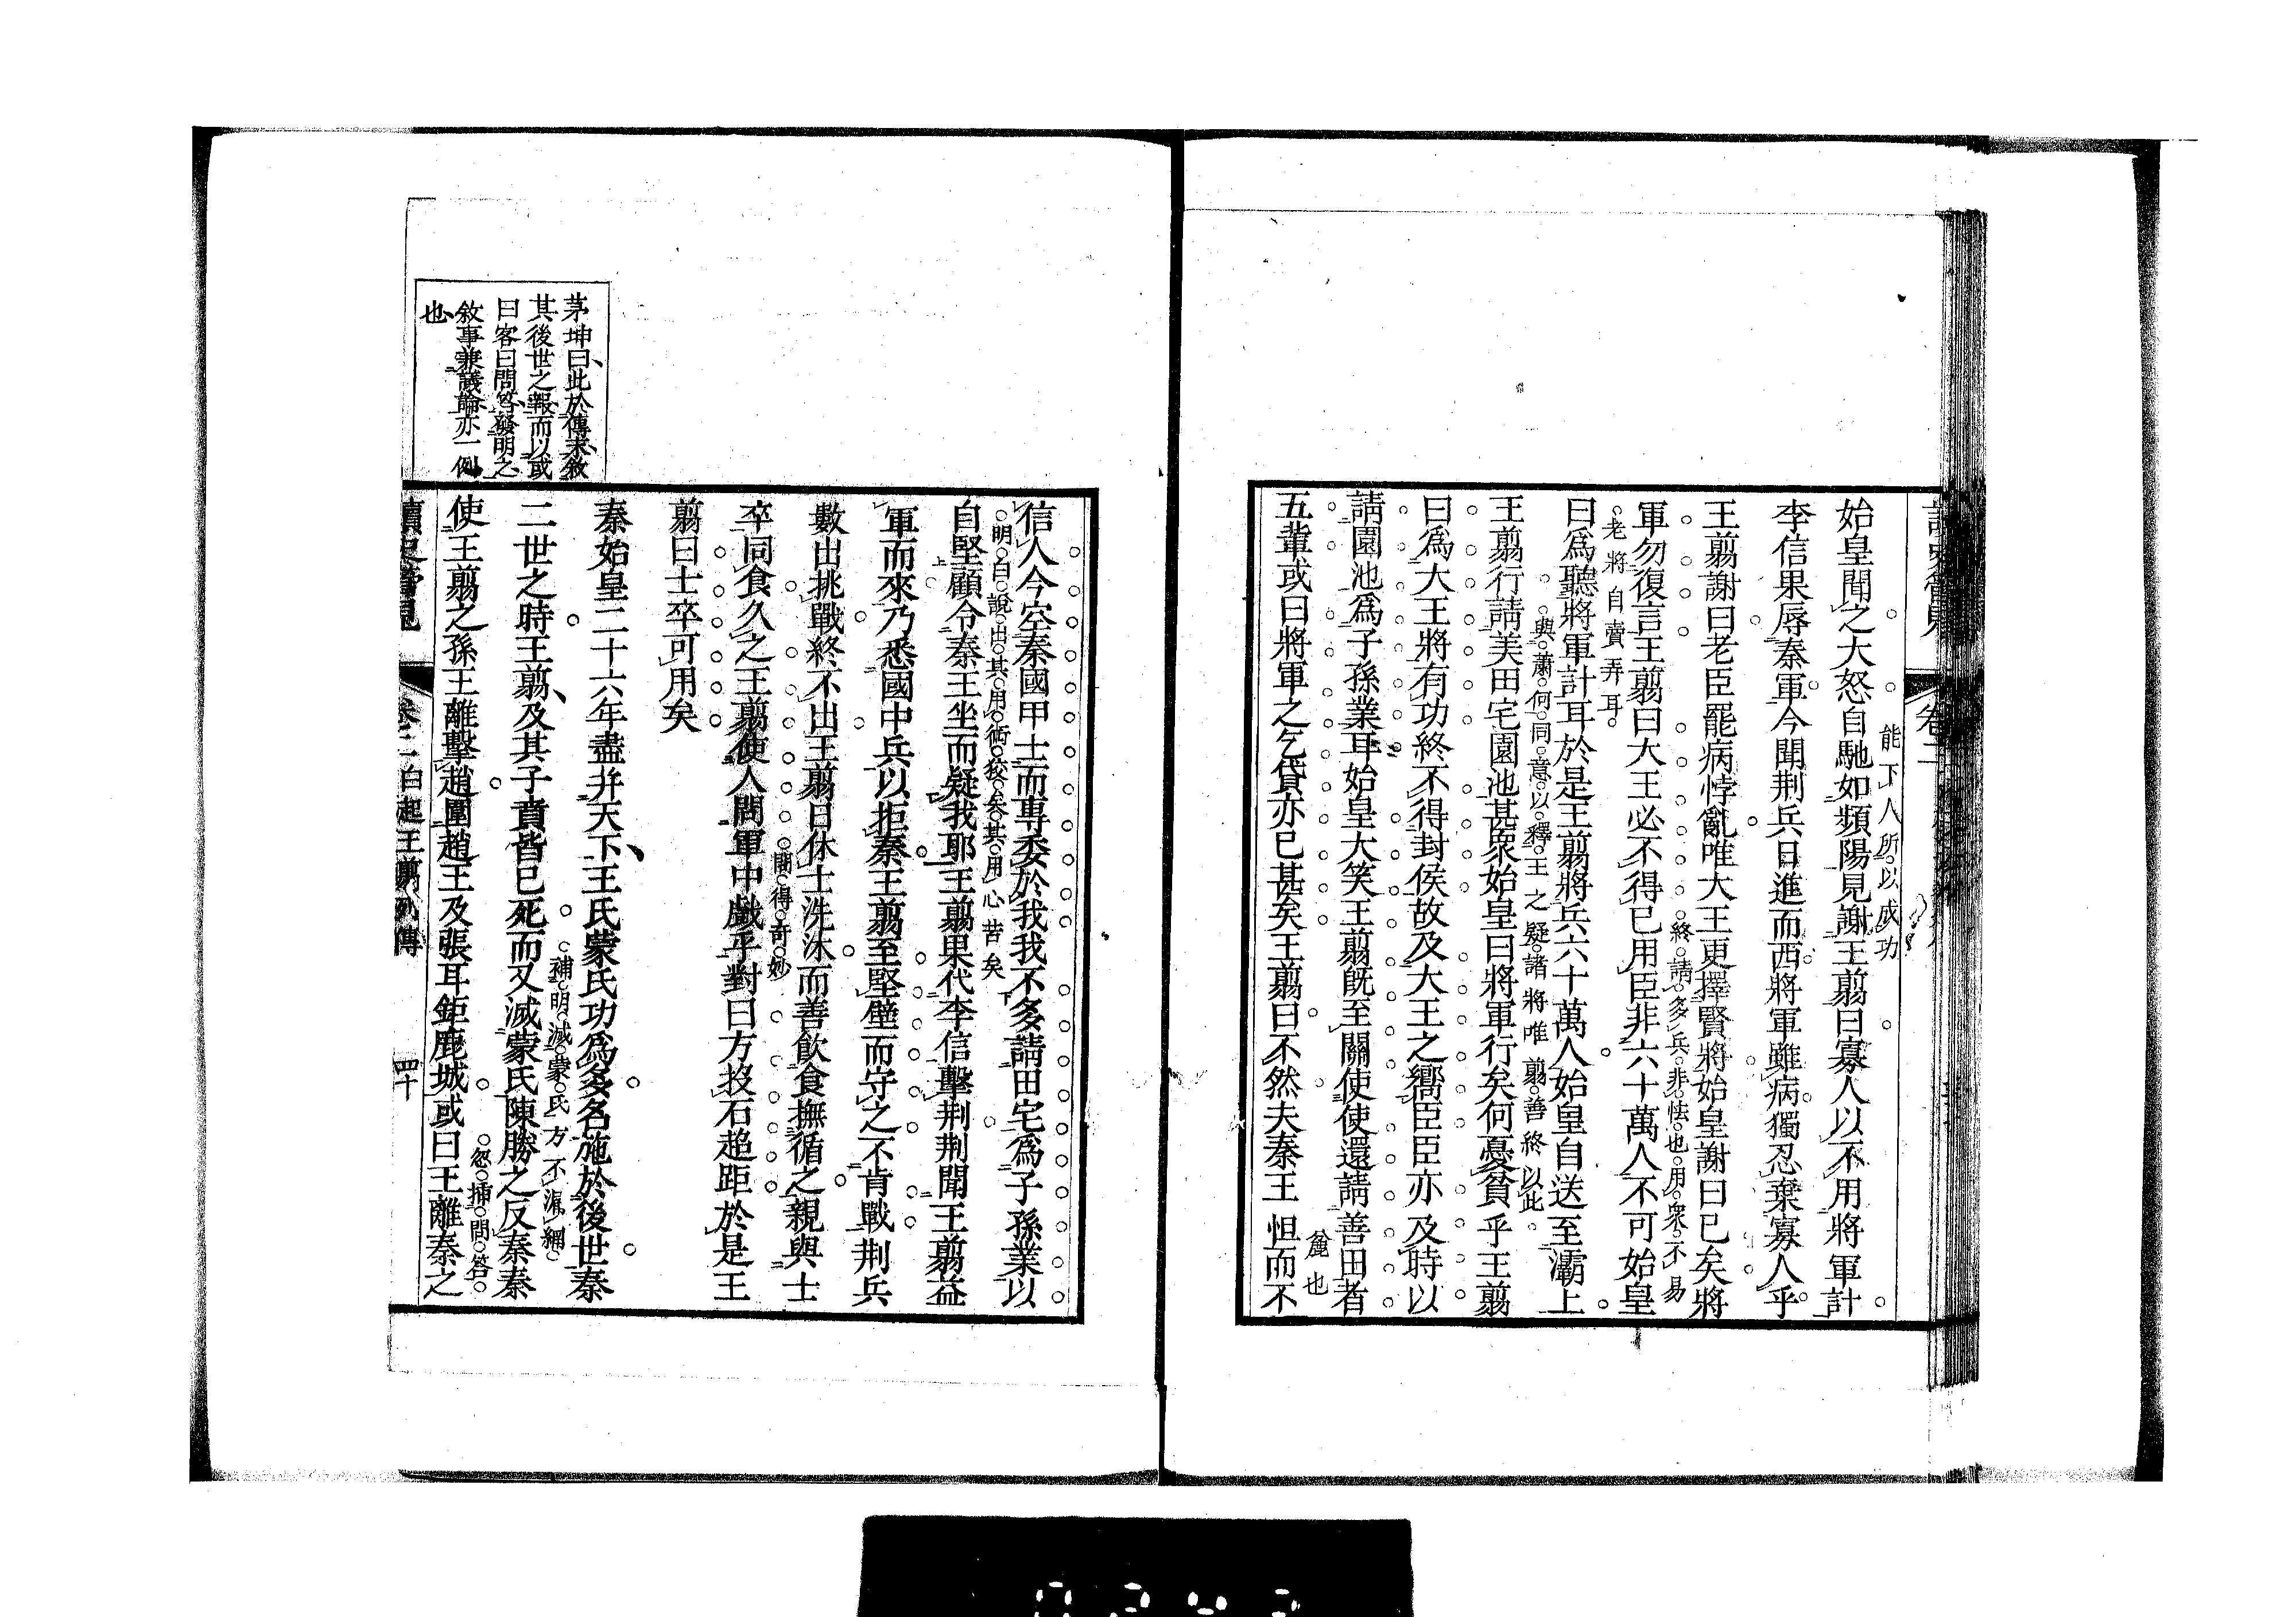 能下人所以成功
始皇聞之大怒自馳如頻陽見謝王翦曰寡人以不用將軍計
李信果辱秦軍今聞荆兵日進而西將軍雖病獨忍棄寡人乎
王翦謝曰老臣罷病悖亂唯大王更擇賢將始皇謝曰已矣將
終請多兵非怯也用衆不易
軍勿復言王翦曰大王必不得已用臣非六十萬人不可始皇
老將自賣弄耳
曰爲聽將軍計耳於是王翦將兵六十萬人始皇自送至灞上
與蕭何同意以釋王之疑諸將唯翦善終以此
王翦行請美田宅園池甚衆始皇曰將軍行矣何憂貧乎王翦
曰爲大王將有功終不得封侯故及大王之嚮臣臣亦及時以
請園池爲子孫業耳始皇大笑王翦旣至關使使還請善田者
麄也
五輩或曰將軍之乞貸亦已甚矣王翦曰不然夫秦王怚而不
信人今空秦國甲士而專委於我我不多請田宅爲子孫業以
明白說出其用術狡矣其用心苦矣
自堅顧令秦王坐而疑我耶王翦果代李信擊荆荆聞王翦益
軍而來乃悉國中兵以拒秦王翦至堅壁而守之不肯戰荆兵
數出挑戰終不出王翦日休士洗沐而善飮食撫循之親與士
問得奇妙
卒同食久之王翦使人問軍中戲乎對曰方投石超距於是王
翦曰士卒可用矣
秦始皇二十六年盡幷天下王氏蒙氏功爲多名施於後世秦
補明滅蒙氏方不漏網
二世之時王翦及其子賁皆已死而又滅蒙氏陳勝之反秦秦
忽揷問答
使王翦之孫王離擊趙圍趙王及張耳鉅鹿城或曰王離秦之
茅坤曰此於傳末敘
其後世之報而以或
曰客曰問答發明之
敘事兼議論亦一例
也
讀史管見
卷二白起王翦列傳
四十